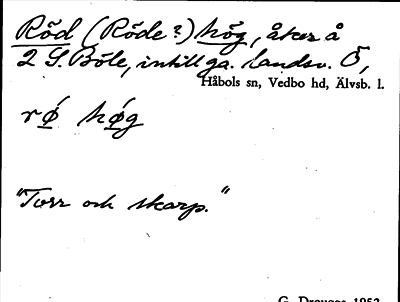 Röd (Röde?) hög, åker å
2 S. Böle, intill ga. landsv. Ö,
Håbols sn, Vedbo hd, Älvsb. l.
rǿ hǿg
"Torr och skarp."
G. Drougge 1953